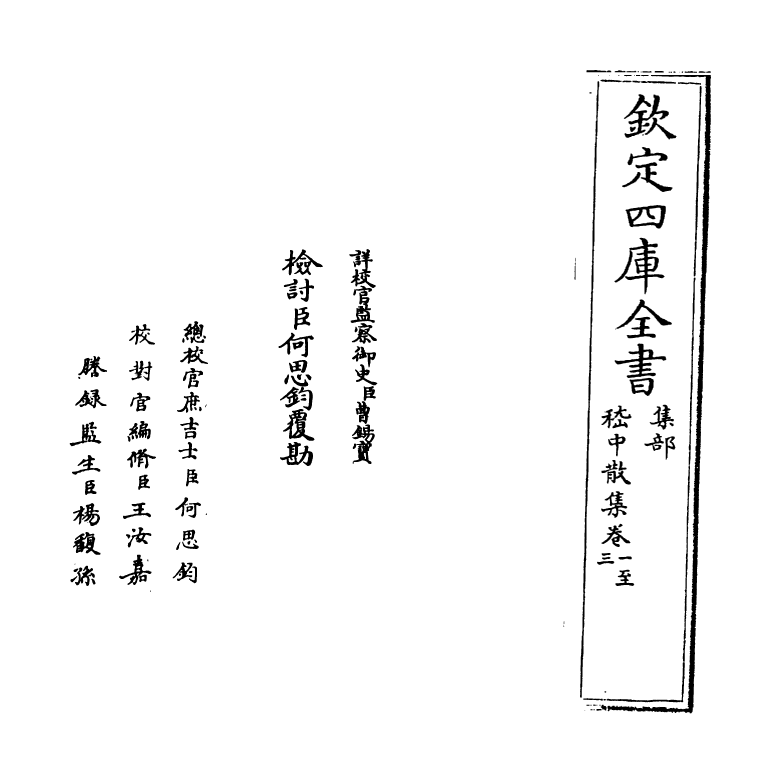 欽定四庫全書
集部
嵇中散集卷一至三
詳校官監察御史臣曹錫寶
檢討臣何思鈞覆勘
總校官庶吉士臣何思鈞
校對官編脩臣王汝嘉
謄錄監生臣楊馥孫